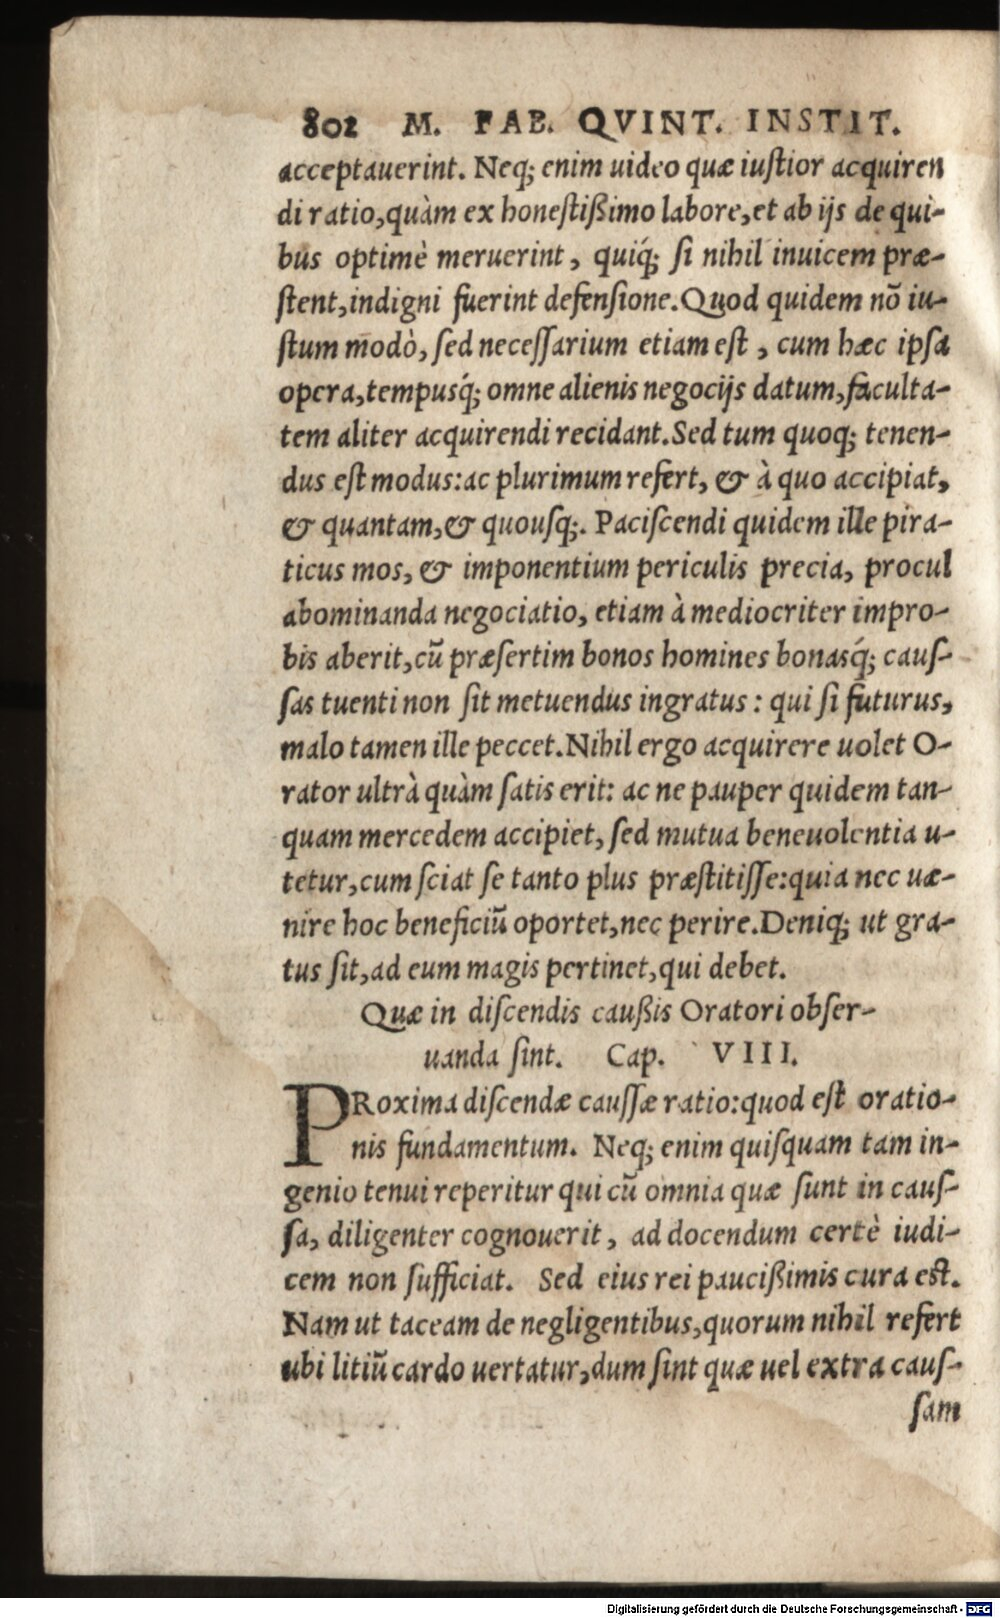 802 M. FAB. QVINT. INSTIT.
acceptauerint. Neq; enim uideo quæ iuſtior acquiren
di ratio, quàm ex honeſtißimo labore, et ab ijs de qui-
bus optimè meruerint, quiq́; ſi nihil inuicem præ-
ſtent, indigni fuerint defenſione. Quod quidem nō iu-
ſtum modò, ſed neceſſarium etiam eſt, cum hæc ipſa
opera, tempusq́; omne alienis negocijs datum, faculta-
tem aliter acquirendi recidant. Sed tum quoq; tenen-
dus eſt modus: ac plurimum refert, & à quo accipiat,
& quantam, & quouſq;. Paciſcendi quidem ille pira-
ticus mos, & imponentium periculis precia, procul
abominanda negociatio, etiam à mediocriter impro-
bis aberit, cū præſertim bonos homines bonasq́; cauſ-
ſas tuenti non ſit metuendus ingratus: qui ſi futurus,
malo tamen ille peccet. Nihil ergo acquirere uolet O-
rator ultrà quàm ſatis erit: ac ne pauper quidem tan-
quam mercedem accipiet, ſed mutua beneuolentia u-
tetur, cum ſciat ſe tanto plus præſtitiſſe: quia nec uæ-
nire hoc beneficiū oportet, nec perire. Deniq; ut gra-
tus ſit, ad eum magis pertinet, qui debet.
Quæ in diſcendis caußis Oratori obſer-
uanda ſint. Cap. VIII.
PRoxima diſcendæ cauſſæ ratio: quod eſt oratio-
nis fundamentum. Neq; enim quiſquam tam in-
genio tenui reperitur qui cū omnia quæ ſunt in cauſ-
ſa, diligenter cognouerit, ad docendum certè iudi-
cem non ſufficiat. Sed eius rei paucißimis cura eſt.
Nam ut taceam de negligentibus, quorum nihil refert
ubi litiū cardo uertatur, dum ſint quæ uel extra cauſ-
ſam
Digitalisierung gefördert durch die Deutsche Forschungsgemeinschaft - DFG